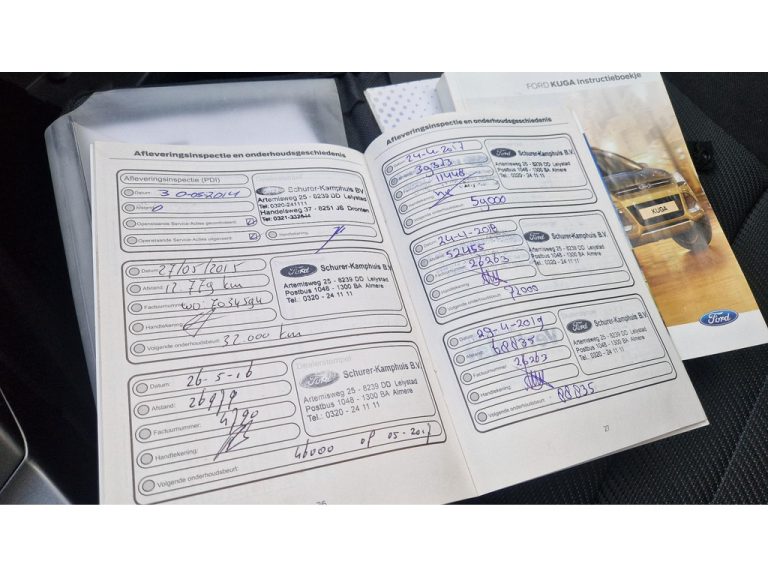 FORD KUGA Instructieboekje
KUGA
Ford
Afleveringsinspectie en onderhoudsgeschiedenis
Afleveringsinspectie (PDI)
Datum: 30-05-2014
Afstand: 0
Openstaande Service-Acties gelezen
Openstaande Service-Acties uitgevoerd
Handtekening:
Ford Schurer-Kamphuis B.V.
Artemisweg 25 - 8239 DD Lelystad
Tel: 0320-241111
Handelsweg 37 - 8251 JS Dronten
Datum: 27/05/2015
Afstand: 12.779 km
Factuurnummer: WO: 7034594
Handtekening:
Volgende onderhoudsbeurt: 32.000 km
Ford Schurer-Kamphuis B.V.
Artemisweg 25 - 8239 DD Lelystad
Postbus 1048 - 1300 BA Almere
Tel.: 0320 - 24 11 11
Datum: 26-5-16
Afstand: 26979
Factuurnummer: 4790
Handtekening:
Volgende onderhoudsbeurt: 46000 of 05-2017
Dealerstempel
Ford Schurer-Kamphuis B.V.
Artemisweg 25 - 8239 DD Lelystad
Postbus 1048 - 1300 BA Almere
Tel.: 0320 - 24 11 11
Afleveringsinspectie en onderhoudsgeschiedenis
24-4-2017
39323
11448
59000
Ford Schurer-Kamphuis B.V.
Artemisweg 25 - 8239 DD Lelystad
Postbus 1048 - 1300 BA Almere
Tel.: 0320 - 24 11 11
Datum: 24-4-2018
Afstand: 52455
26263
Handtekening:
Volgende onderhoudsbeurt: 72000
Ford Schurer-Kamphuis B.V.
Artemisweg 25 - 8239 DD Lelystad
Postbus 1048 - 1300 BA Almere
Tel.: 0320 - 24 11 11
Datum: 29-4-2019
Afstand:
Factuurnummer: 26263
Handtekening:
Volgende onderhoudsbeurt:
Ford Schurer-Kamphuis B.V.
Artemisweg 25 - 8239 DD Lelystad
Postbus 1048 - 1300 BA Almere
Tel.: 0320 - 24 11 11
27